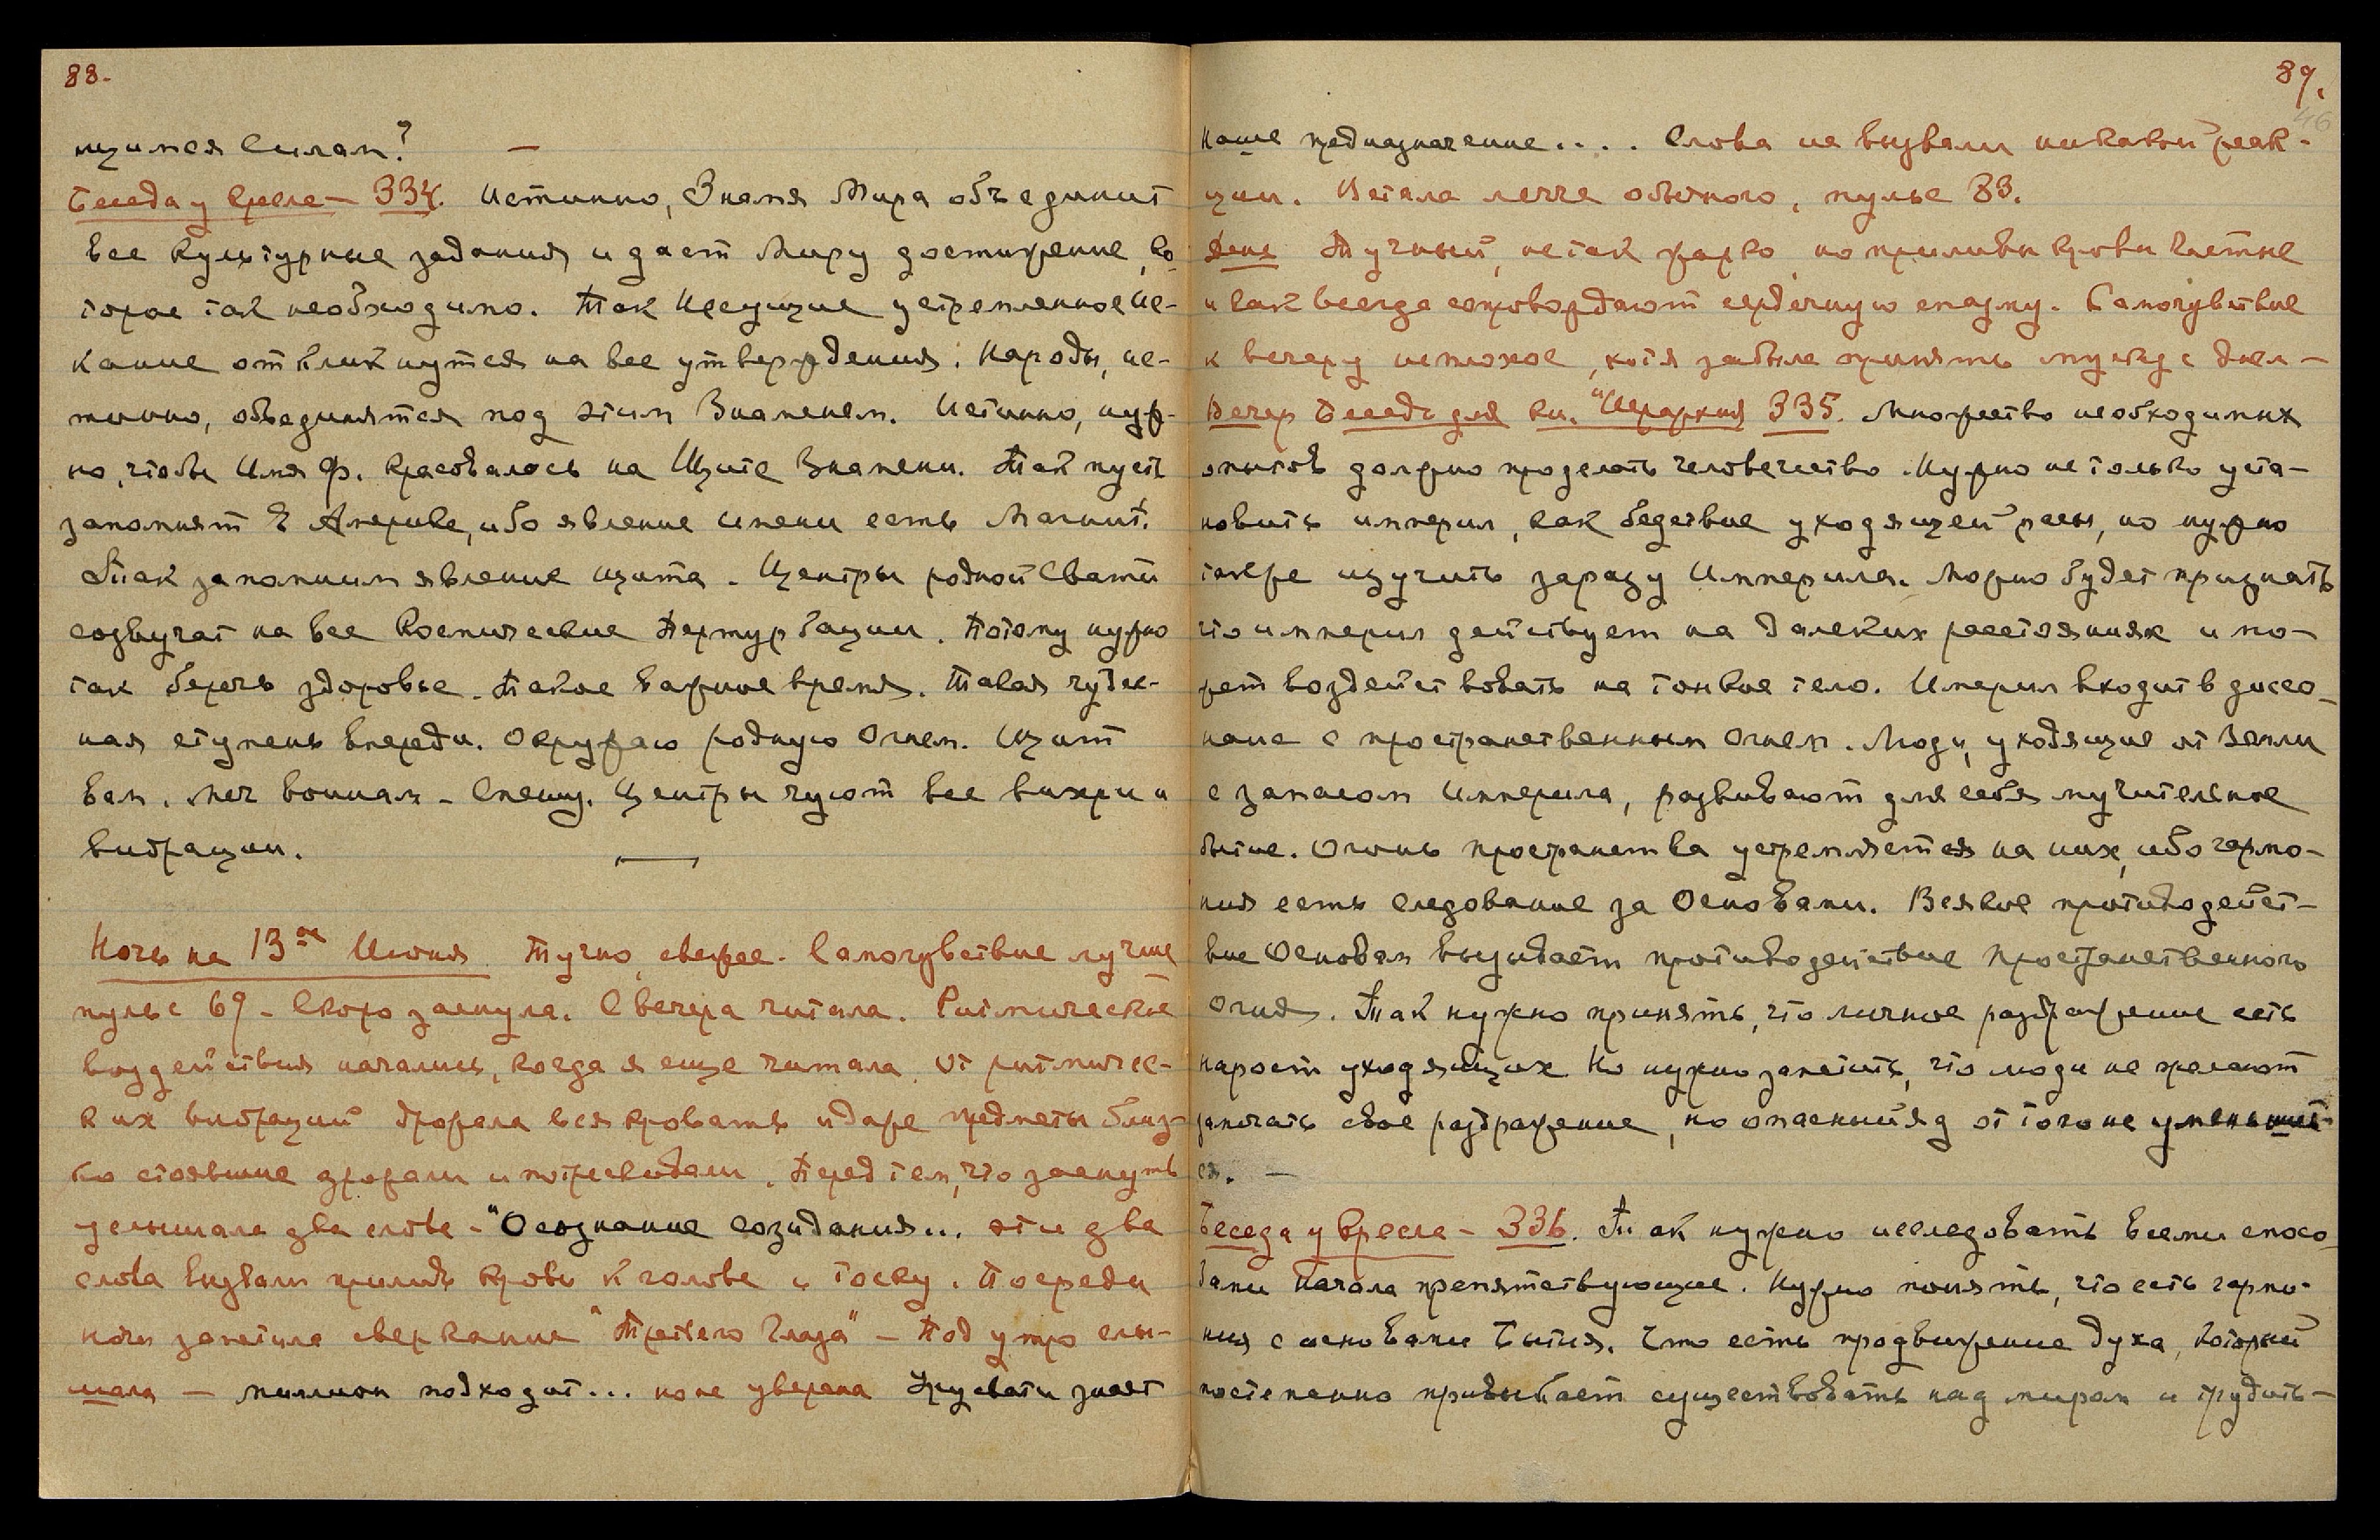 88.
щимся силам? —
Беседа у кресла — 334. Истинно, Знамя Мира объединит
все культурные задания и дает Миру достижение, ко-
торое так необходимо. Так Несущие устремленное ис-
кание откликнутся на все утверждения. Народы, ис-
тинно, объединятся под этим Знаменем. Истинно, нуж-
но, чтобы Имя Ф. красовалось на Щите Знамени. Так пусть
запомнят в Америке, ибо явление имени есть Магнит.
Так запомним явление щита. Центры родной Свати
созвучат на все Космические Пертурбации. Потому нужно
так беречь здоровье. Такое важное время. Такая чудес-
ная ступень впереди. Окружаю родную Огнем. Щит
вам. Меч воинам — Спешу. Центры чуют все вихри и
вибрации. —
Ночь на 13ое Июня Тучно, свежее. Самочувствие лучше
пульс 69 — Скоро заснула. С вечера читала. Ритмические
воздействия начались, когда я еще читала. От ритмичес-
ких вибраций дрожала вся кровать и даже предметы близ-
ко стоявшие дрожали и потрескивали. Перед тем, что заснуть
услышала два слова — "Осознание созидания... эти два
слова вызвали прилив крови к голове и тоску. Посреди
ночи заметила сверкание "Третьего Глаза" — Под утро слы-
шала — миллион подходит... но не уверена Урусвати знает
89.
46
наше предназначение.... Слова не вызвали никакой реак-
ции. Встала легче обычного, пульс 83.
День Тучный, не так жарко, но приливы крови частые
и как всегда сопровождают сердечную спазму. Самочувствие
к вечеру неплохое, хотя забыла принять мускус днем —
Вечер Беседа для кн. "Иерархия 335. Множество необходимых
опытов должно проделать человечество. Нужно не только уста-
новить империл, как бедствие уходящей расы, но нужно
также изучить заразу Империла. Можно будет признать
что империл действует на далеких расстояниях и мо-
жет воздействовать на тонкое тело. Империл входит в диссо-
нанс с пространственным Огнем. Люди, уходящие от Земли
с запасом Империла, развивают для себя мучительное
бытие. Огонь пространства устремляется на них, ибо гармо-
ния есть следование за Основами. Всякое противодейст-
вие Основам вызывает противодействие Пространственного
Огня. Так нужно принять, что личное раздражение есть
нарост уходящих Но нужно заметить, что люди не желают
замечать свое раздражение, но опасный яд от того не уменьшит-
ся. —
Беседа у Кресла — 336. Так нужно исследовать всеми спосо-
бами Начала препятствующие. Нужно понять, что есть гармо-
ния с основами Бытия. Что есть продвижение духа, который
постепенно привыкает существовать над миром и трудить-